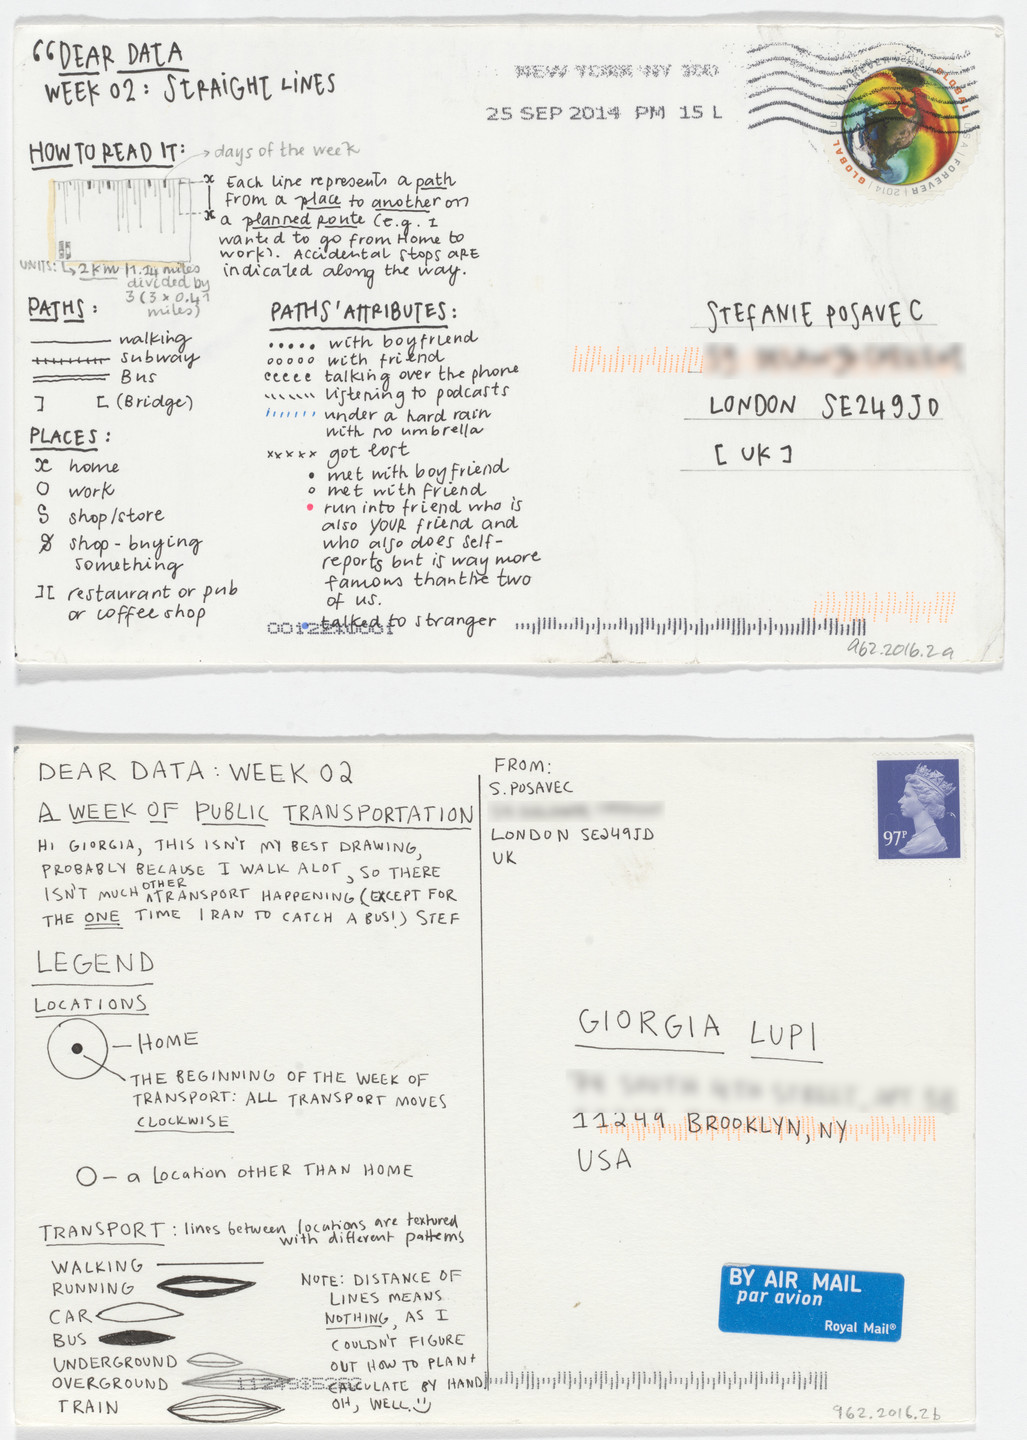 “DEAR DATA
WEEK 02: STRAIGHT LINES
NEW YORK NY 100
25 SEP 2014 PM 15 L
FOREVER
GLOBAL
USA | FOREVER | 2014 | GLOBAL
HOW TO READ IT:
days of the week
x Each line represents a path
from a place to another on
x a planned route (e.g. I
wanted to go from Home to
work). Accidental stops ARE
indicated along the way.
UNITS: 2 km | 1.24 miles
divided by
3 (3 x 0.41
miles)
PATHS:
walking
subway
Bus
] [ (Bridge)
PLACES:
x home
O work
S shop/store
$ shop - buying
something
][ restaurant or pub
or coffee shop
PATHS' ATTRIBUTES:
with boyfriend
with friend
talking over the phone
listening to podcasts
under a hard rain
with no umbrella
xxxxx got lost
met with boyfriend
met with friend
run into friend who is
also YOUR friend and
who also does self-
reports but is way more
famous than the two
of us.
talked to stranger
STEFANIE POSAVEC
LONDON SE249JD
[UK]
962.2016.2a
DEAR DATA: WEEK 02
A WEEK OF PUBLIC TRANSPORTATION
HI GIORGIA, THIS ISN'T MY BEST DRAWING,
PROBABLY BECAUSE I WALK ALOT, SO THERE
ISN'T MUCH OTHER TRANSPORT HAPPENING (EXCEPT FOR
THE ONE TIME I RAN TO CATCH A BUS!) STEF
LEGEND
LOCATIONS
HOME
THE BEGINNING OF THE WEEK OF
TRANSPORT: ALL TRANSPORT MOVES
CLOCKWISE
O - a Location OTHER THAN HOME
TRANSPORT: lines between locations are textured
with different patterns
WALKING
RUNNING
CAR
BUS
UNDERGROUND
OVERGROUND
TRAIN
NOTE: DISTANCE OF
LINES MEANS
NOTHING, AS I
COULDN'T FIGURE
OUT HOW TO PLAN +
CALCULATE BY HAND
OH, WELL.
FROM:
S. POSAVEC
LONDON SE249JD
UK
97P
GIORGIA LUPI
11249 BROOKLYN, NY
USA
BY AIR MAIL
par avion
Royal Mail®
962.2016.2b